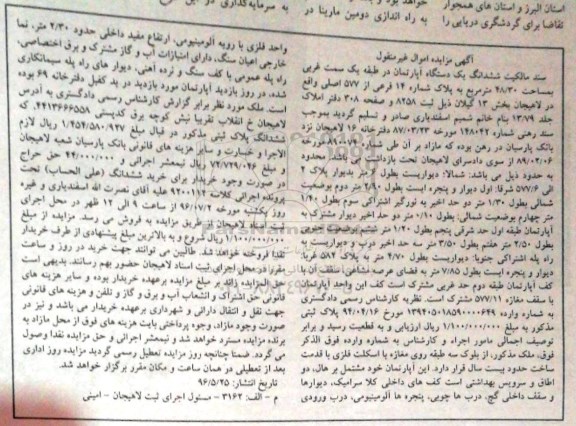 استان البرز و استان های همجوار
تقاضا برای گردشگری دریایی را
خواهد بود و
به راه اندازی دومین مارینا در
به سرمایه‌گذاری در این
آگهی مزایده اموال غیرمنقول
سند مالکیت ششدانگ یک دستگاه آپارتمان در طبقه یک سمت غربی
بمساحت ۴۸/۳۰ مترمربع به پلاک شماره ۱۴ فرعی از ۵۷۷ اصلی واقع
در لاهیجان بخش ۱۳ گیلان ذیل ثبت ۸۲۵۸ و صفحه ۳۰۸ دفتر املاک
جلد ۱۳/۷۹ بنام خانم شمیم اسفندیاری صادر و تسلیم گردید بموجب
سند رهنی شماره ۱۴۸۰۴۲ مورخه ۸۷/۰۳/۲۳ دفترخانه ۱۶ لاهیجان نزد
بانک پارسیان در رهن بوده که مازاد بر آن طی شماره مورخه
۸۹/۰۳/۰۶ از سوی دادسرای لاهیجان تحت بازداشت می باشد. محدود
به حدود ذیل می باشد: شمالا: دیواریست بطول متر بدیوار پلاک ۲
الی ۵۷۷/۶ شرقا: اول دیوار و پنجره ایست بطول ۲/۸۰ متر دوم بوضعیت
شمالی بطول ۱/۳۰ متر دو حد اخیر به نورگیر اشتراکی سوم بطول
متر چهارم بوضعیت شمالی: بطول ۰/۱۰ متر دو حد اخیر دیوار مشترک به
آپارتمان طبقه اول حد شرقی پنجم بطول ۱/۲۰ متر ششم بوضعیت جنوبی
بطول ۲/۵۰ متر هفتم بطول ۳/۵۰ متر سه حد اخیر درب و دیواریست به
راه پله اشتراکی جنوبا: دیواریست بطول ۴/۷۰ متر به پلاک ۵۸۲ غربا
دیوار و پنجره ایست بطول ۷/۸۵ متر به فضای عرصه مشاعی سقف آن با
کف آپارتمان طبقه دوم حد غربی مشترک است کف این واحد آپارتمان
با سقف مغازه ۵۷۷/۱۱ مشترک است. نظریه کارشناس رسمی دادگستری
به شماره وارده ۱۳۹۴۰۵۰۱۸۵۹۰۰۰۰۶۴۹ مورخ ۹۴/۰۴/۱۶ پلاک ثبتی
مذکور به مبلغ ۱/۱۰۰/۰۰۰/۰۰۰ ریال ارزیابی و به قطعیت رسید و برابر
توصیف اجمالی مامور اجراء و کارشناس به شماره وارده فوق الذکر
فوق، ملک مذکور، از بلوک سه طبقه روی مغازه با اسکلت فلزی با قدمت
ساخت حدود بیست سال قرار دارد. این آپارتمان خود مشتمل بر هال، دو
اطاق و سرویس بهداشتی است کف های داخلی کلا سرامیک، دیوارها
و سقف داخلی گچ، درب ها چوبی، پنجره ها آلومینیومی، درب ورودی
واحد فلزی با رویه آلومینیومی، ارتفاع مفید داخلی حدود ۲/۳۰ متر، نما
خارجی اعیان سنگ، دارای امتیازات آب و گاز مشترک و برق اختصاصی،
راه پله عمومی با کف سنگ و نرده آهنی، دیوار های راه پله سیمانکاری
شده، در روز بازدید آپارتمان مورد بازدید در ید کفیل دفترخانه ۶۹ بوده
است. ملک مورد نظر برابر گزارش کارشناس رسمی دادگستری به آدرس
لاهیجان خ انقلاب تقریبا نبش کوچه برق کدپستی ۴۴۱۳۶۶۶۵۵۸، که
ششدانگ پلاک ثبتی مذکور در قبال مبلغ ۱/۴۵۴/۵۸۰/۹۳۷ ریال لازم
الاجرا و خسارت و سایر هزینه های قانونی بانک پارسیان شعبه لاهیجان
و مبلغ ۷۲/۷۲۹/۰۴۶ ریال نیمعشر اجرائی و ۴۴/۰۰۰/۰۰۰ حق حراج
در صورت وجود خریدار برای خرید ششدانگ (علی الحساب) تحت
پرونده اجرائی کلاسه ۹۲۰۰۱۱۲ علیه آقای نصرت الله اسفندیاری و غیره
روز یکشنبه مورخه ۹۶/۰۷/۲ از ساعت ۹ الی ۱۲ ظهر در محل اجرای
ثبت اسناد لاهیجان از طریق مزایده به فروش می رسد. مزایده از مبلغ
۱/۱۰۰/۰۰۰/۰۰۰ ریال شروع و به بالاترین مبلغ پیشنهادی از طرف خریدار
نقدا فروخته خواهد شد. طالبین می توانند جهت خرید در روز و ساعت
مقرر در محل اجرای ثبت اسناد لاهیجان حضور بهم رسانند. بدیهی است
حق المزایده زائد بر مبلغ مزایده برعهده خریدار بوده و سایر هزینه های
قانونی حق اشتراک و انشعاب آب و برق و گاز و تلفن و هزینه های قانونی
جهت نقل و انتقال دارائی و شهرداری برعهده خریدار می باشد و نیز در
صورت وجود مازاد، وجوه پرداختی بابت هزینه های فوق از محل مازاد به
برنده مزایده مسترد خواهد شد و نیمعشر اجرائی و حق مزایده نقدا وصول
می گردد. ضمنا چنانچه روز مزایده تعطیل رسمی گردید مزایده روز اداری
بعد از تعطیلی در همان ساعت و مکان مقرر برگزار خواهد شد.
تاریخ انتشار: ۹۶/۵/۲۵
م - الف: ۳۱۶۲ - مسئول اجرای ثبت لاهیجان - امینی